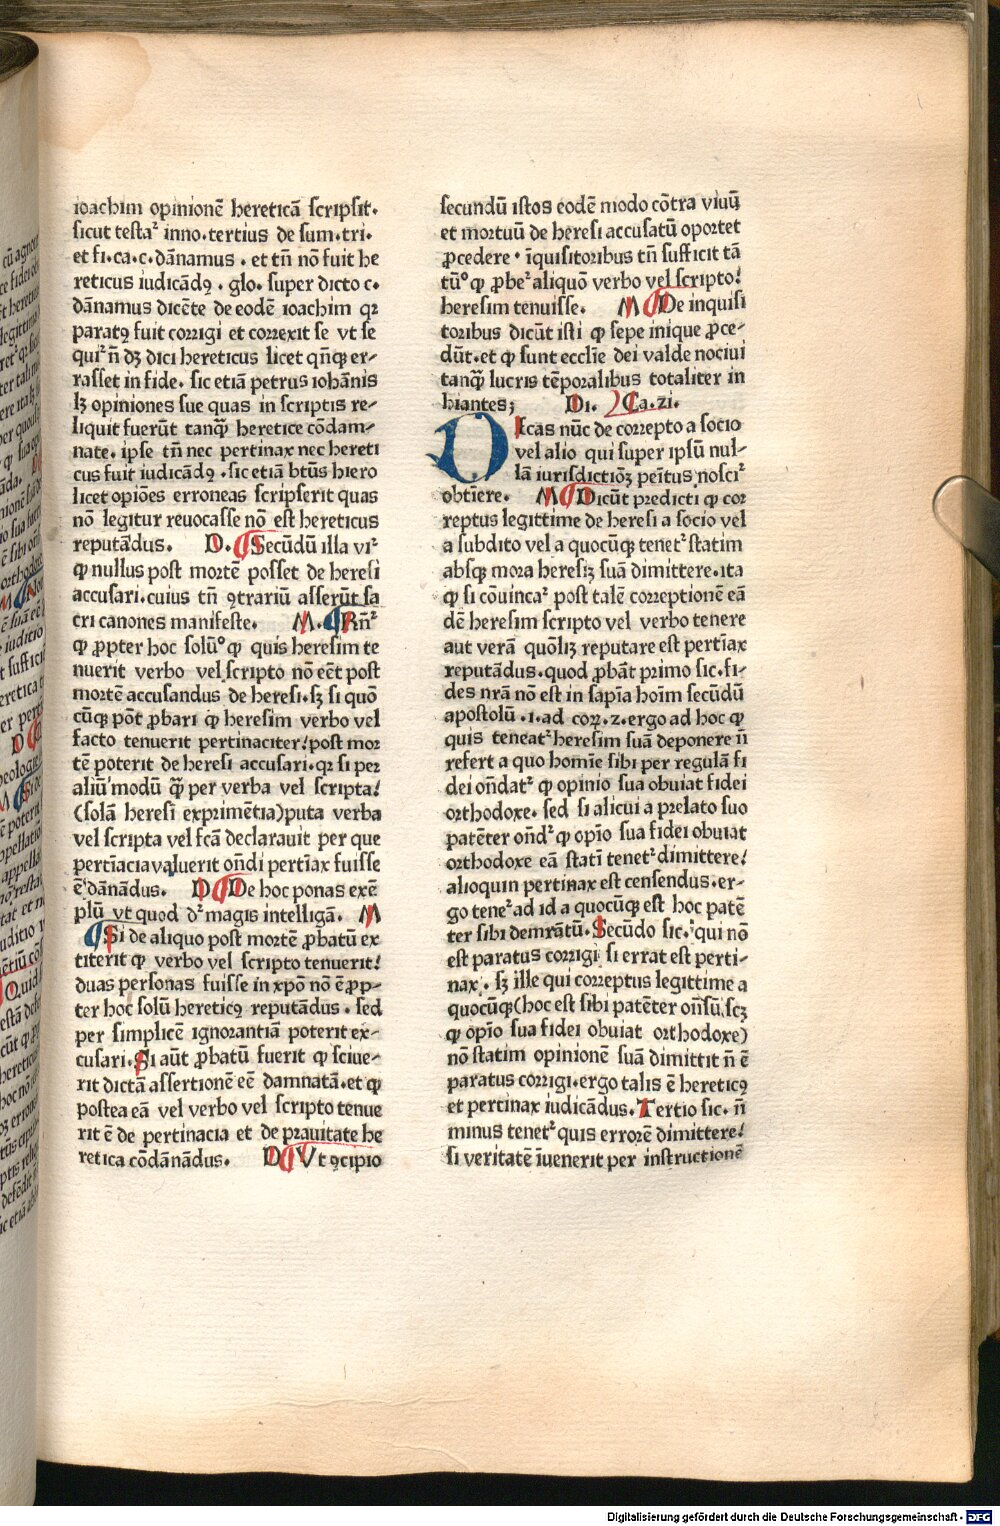 ioachim opinionē hereticā scripsit.
sicut testaꝛ inno.tertius de sum.tri.
et fi.ca.c.dānamus . et tn̄ nō fuit he
reticus iudicādꝯ . glo. super dicto c.
dānamus dicēte de eodē ioachim qꝛ
paratꝯ fuit corrigi et correxit se vt se
quiꝛ n̄ dꝫ dici hereticus licet qn̄qꝫ er-
rasset in fide. sic etiā petrus iohānis
lꝫ opiniones sue quas in scriptis re-
liquit fuerūt tanqꝫ̄ heretice cōdam-
nate. ipse tn̄ nec pertinax nec hereti
cus fuit iudicādꝯ .sic etiā btūs hiero
licet opiōes erroneas scripserit quas
nō legitur reuocasse nō est hereticus
reputādus. D. Secūdū illa viꝛ
ꝙ nullus post mortē posset de heresi
accusari.cuius tn̄ ꝯtrariū asserūt sa
cri canones manifeste. M. Rn̄ꝛ
ꝙ ꝓpter hoc solūº ꝙ quis heresim te
nuerit verbo vel scripto nō eēt post
mortē accusandus de heresi.sꝫ si quō
cūqꝫ pōt ꝓbari ꝙ heresim verbo vel
facto tenuerit pertinaciter/post mor
tē poterit de heresi accusari.qꝛ si per
aliū modū qꝫ̄ per verba vel scripta/
(solā heresi exprimētia)puta verba
vel scripta vel fcā declarauit per que
pertīacia valuerit ondi pertīax fuisse
ē dānādus. D De hoc ponas exē
plū vt quod dꝛ magis intelligā. M
Si de aliquo post mortē ꝓbatū ex
titerit ꝙ verbo vel scripto tenuerit/
duas personas fuisse in xpō nō ē ꝓp-
ter hoc solū hereticꝯ reputādus . sed
per simplicē ignorantiā poterit ex-
cusari.Si aūt ꝓbatū fuerit ꝙ sciue-
rit dictā assertionē eē damnatā.et ꝙ
postea eā vel verbo vel scripto tenue
rit ē de pertinacia et de prauitate he
retica cōdānādus. D Vt ꝯcipio
secundū istos eodē modo cōtra viuū
et mortuū de heresi accusatū oportet
ꝓcedere . īquisitoribus tn̄ sufficit tā
tūº ꝙ ꝓbeꝛ aliquō verbo vel scripto/
heresim tenuisse. M De inquisi
toribus dicūt isti ꝙ sepe inique ꝓce-
dūt.et ꝙ sunt ecclīe dei valde nociui
tanqꝫ̄ lucris tēporalibus totaliter in
hiantes; Di. Ca.zi.
Dicas nūc de correpto a socio
vel alio qui super ipsū nul-
lā iurisdictioꝫ peītus nosciꝛ
obtīere. M Dicūt predicti ꝙ cor
reptus legittime de heresi a socio vel
a subdito vel a quocūqꝫ tenetꝛ statim
absqꝫ mora heresiꝫ suā dimittere.ita
ꝙ si cōuincaꝛ post talē correptionē eā
dē heresim scripto vel verbo tenere
aut verā quōlꝫ reputare est pertīax
reputādus.quod ꝓbāt primo sic.fi-
des nrā nō est in sapīa hoīm secūdū
apostolū .1.ad cor.z.ergo ad hoc ꝙ
quis teneatꝛ heresim suā deponere n̄
refert a quo homīe sibi per regulā fi
dei ondatꝛ ꝙ opinio sua obuiat fidei
orthodoxe. sed si alicui a prelato suo
patēter ondꝛ ꝙ opīo sua fidei obuiat
orthodoxe eā statī tenetꝛ dimittere/
alioquin pertinax est censendus.er-
go teneꝛ ad id a quocūqꝫ est hoc patē
ter sibi demrātū.Secūdo sic. qui nō
est paratus corrigi si errat est perti-
nax. sꝫ ille qui correptus legittime a
quocūqꝫ(hoc est sibi patēter onsū/scꝫ
ꝙ opīo sua fidei obuiat orthodoxe)
nō statim opinionē suā dimittit n̄ ē
paratus corrigi.ergo talis ē hereticꝯ
et pertinax iudicādus.Tertio sic. n̄
minus tenetꝛ quis errorē dimittere/
si veritatē īuenerit per instructionē
Digitalisierung gefördert durch die Deutsche Forschungsgemeinschaft - DFG